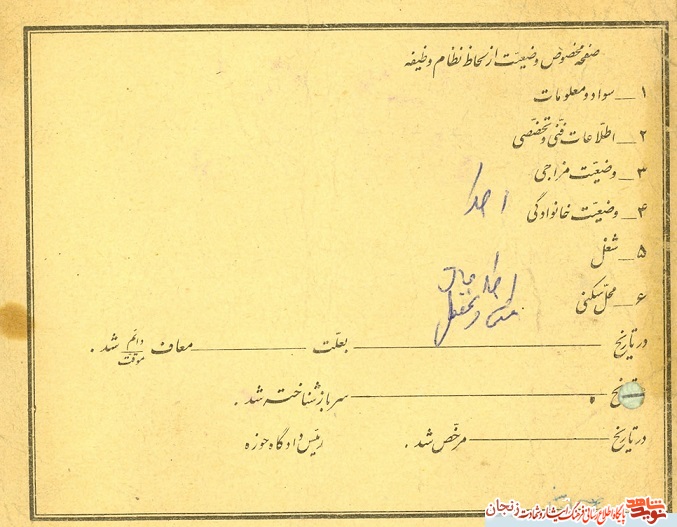 صفحه مخصوص وضعیت از لحاظ نظام وظیفه
۱ــ سواد و معلومات
۲ــ اطلاعات فنی و تخصصی
۳ــ وضعیت مزاجی
۴ــ وضعیت خانوادگی
۵ــ شغل
۶ــ محل سکنی
در تاریخ ــــــ بعلت ــــــ معاف دائم موقت شد .
تاریخ ــــــ سرباز شناخته شد .
در تاریخ ــــــ مرخص شد . رئیس دادگاه حوزه
نوید شاهد
پایگاه اطلاع رسانی فرهنگ ایثار و شهادت زنجان